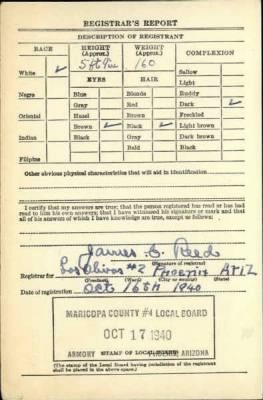 REGISTRAR'S REPORT
DESCRIPTION OF REGISTRANT
RACE HEIGHT (Approx.) WEIGHT (Approx.) COMPLEXION
5 ft 160
White ✓ Sallow
EYES HAIR Light
Negro Blue Blonde Ruddy
Gray Red Dark ✓
Oriental Hazel Brown Freckled
Brown ✓ Black ✓ Light brown
Indian Black Gray Dark brown
Bald Black
Filipino
Other obvious physical characteristics that will aid in identification
I certify that my answers are true; that the person registered has read or has had
read to him his own answers; that I have witnessed his signature or mark and that
all of his answers of which I have knowledge are true, except as follows:
James E. Reed
(Signature of registrar)
Registrar for Los Olivos #2 PHOENIX ARIZ
(Precinct) (Ward) (City or County) (State)
Date of registration Oct 16TH 1940
MARICOPA COUNTY #4 LOCAL BOARD
OCT 17 1940
ARMORY PHOENIX, ARIZONA
STAMP OF LOCAL BOARD
(The stamp of the Local Board having jurisdiction of the registrant
shall be placed in the above space.)